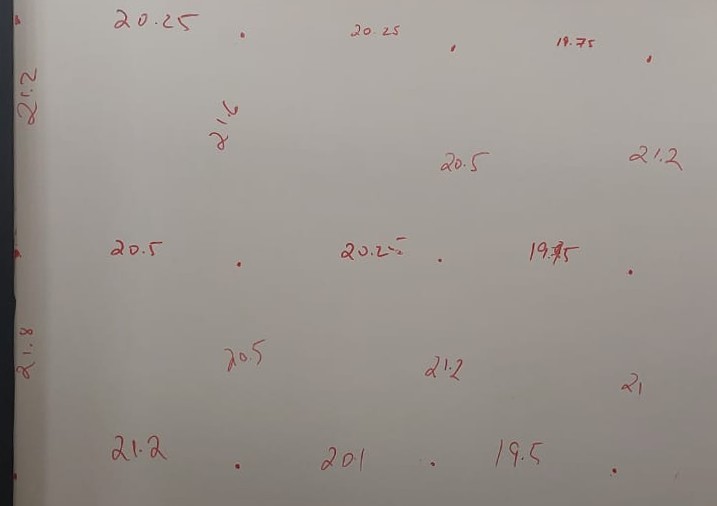 20.25 20.25 19.75
21.2
21.6
20.5 21.2
20.5 20.25
21.8
20.5 21.2 21
21.2 201 19.5